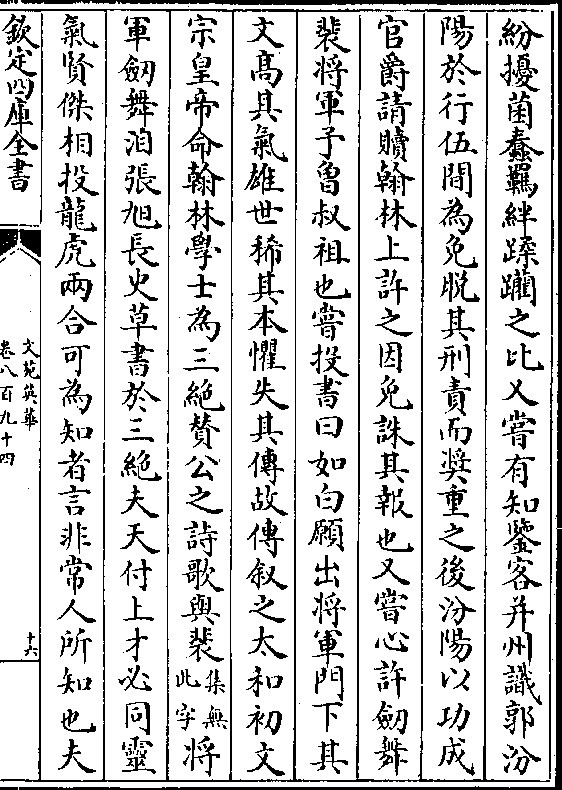 紛擾菌蠢羈絆蹂躪之比又嘗有知鑒客并州識郭汾
陽於行伍間為免脫其刑責而奬重之後汾陽以功成
官爵請贖翰林上許之因免誅其報也又嘗心許劒舞
裴將軍予曾叔祖也嘗投書曰如白願出將軍門下其
文高其氣雄世稀其本懼失其傳故傳叙之太和初文
宗皇帝命翰林學士為三絶贊公之詩歌與裴集無此字將
軍劒舞洎張旭長史草書於三絶夫天付上才必同靈
氣賢傑相投龍虎兩合可為知者言非常人所知也夫
欽定四庫全書
文苑英華
卷八百九十四
十六